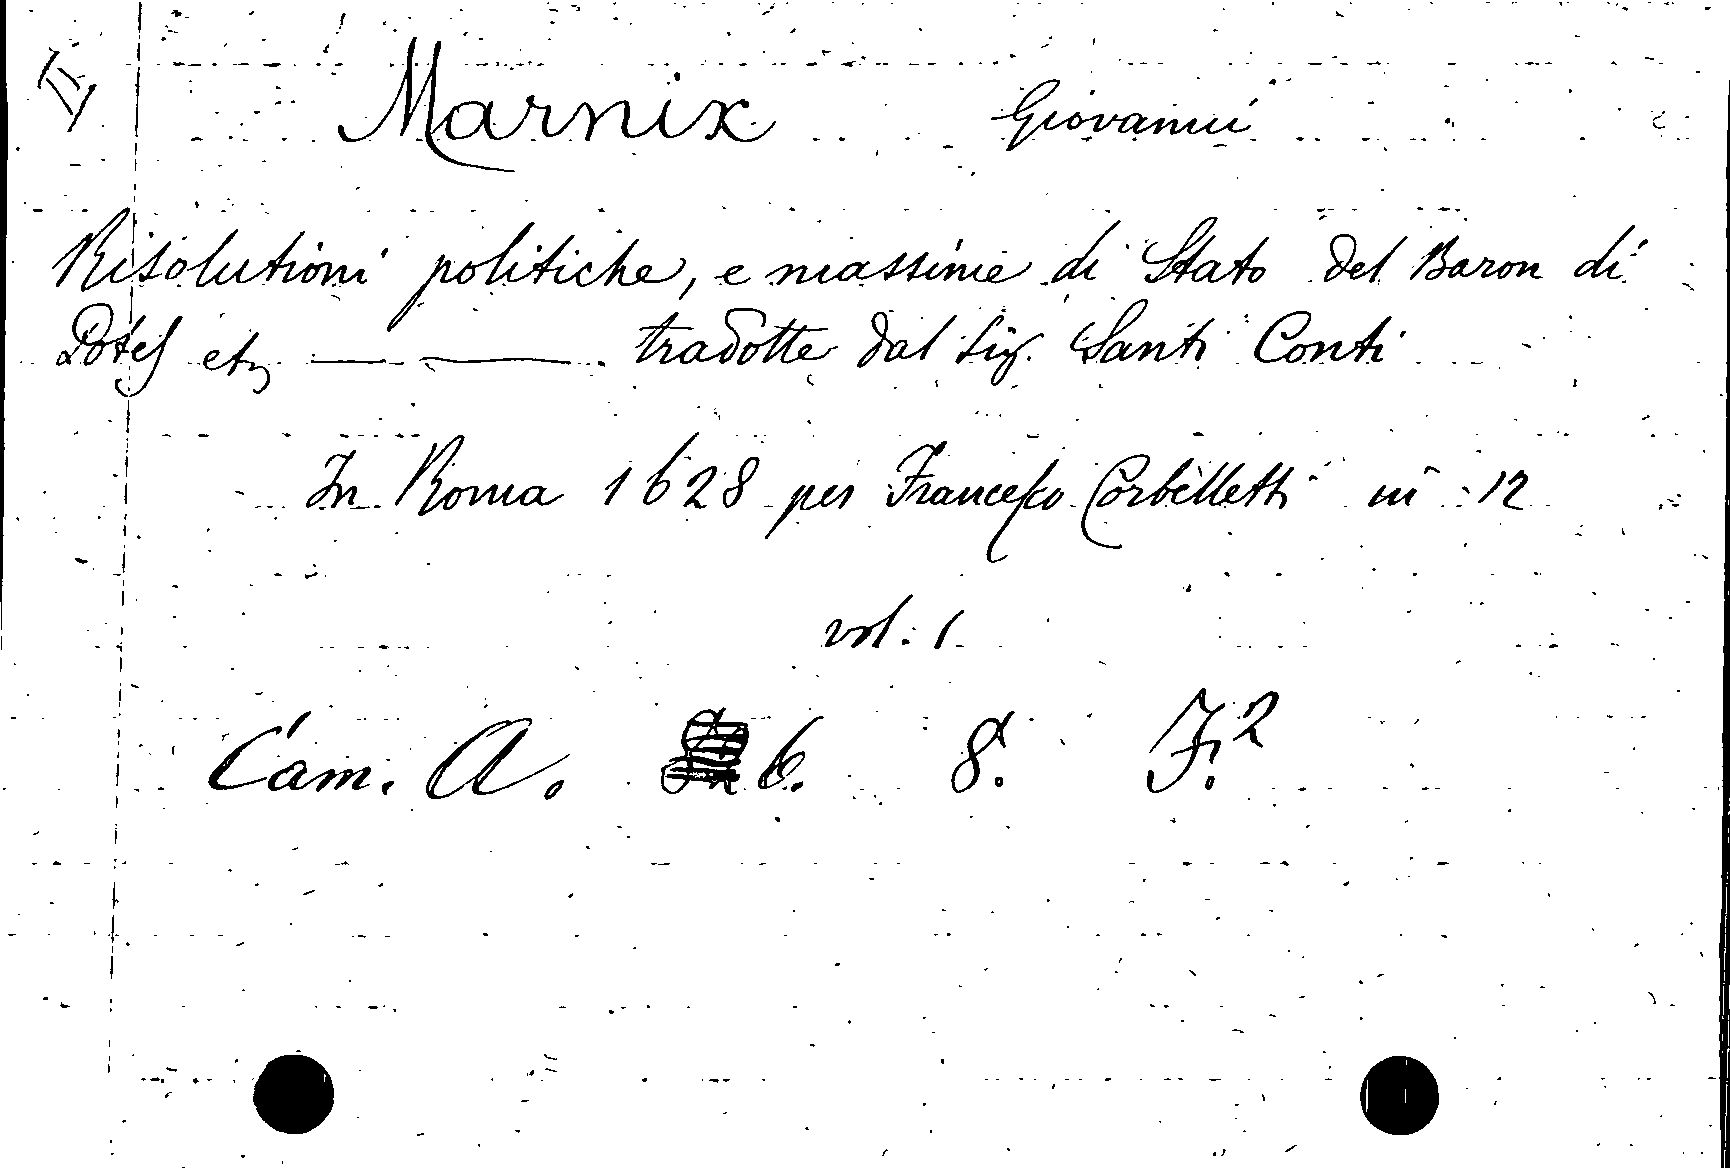 II
Marnix Giovanni
Risolutioni politiche, e massime di Stato del Baron di
Potes etc — — tradotte dal Sig. Santi Conti
In Roma 1628 per Francesco Corbelletti in 12
vol. 1
Cam. A. 6. 8. F.2